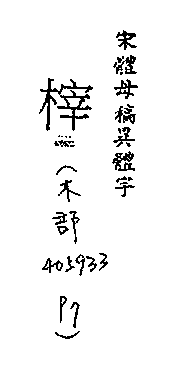 宋體母稿異體字
梓
(木部
405933
P7)